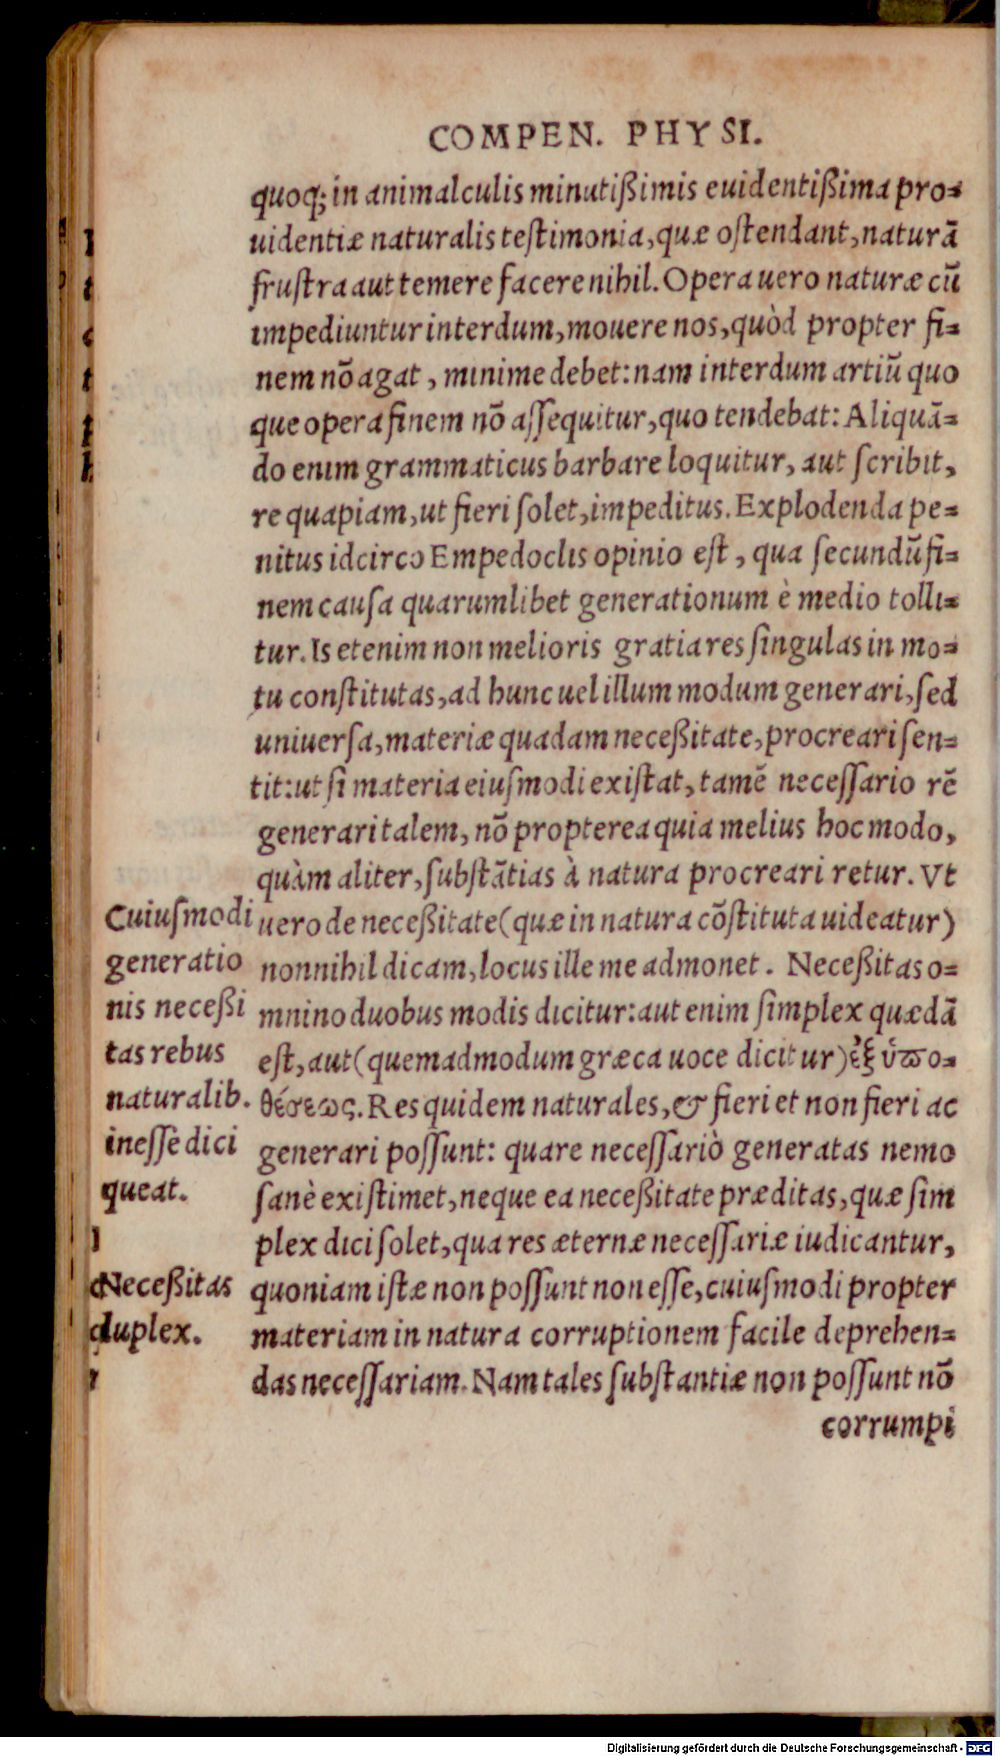 COMPEN. PHYSI.
quoq; in animalculis minutißimis euidentißima pro=
uidentiæ naturalis testimonia, quæ ostendant, naturā
frustra aut temere facere nihil. Opera uero naturæ cū
impediuntur interdum, mouere nos, quòd propter fi=
nem nō agat, minime debet: nam interdum artiū quo
que opera finem nō assequitur, quo tendebat: Aliquā=
do enim grammaticus barbare loquitur, aut scribit,
re quapiam, ut fieri solet, impeditus. Explodenda pe=
nitus idcirco Empedoclis opinio est, qua secundū fi=
nem causa quarumlibet generationum è medio tolli=
tur. Is etenim non melioris gratia res singulas in mo=
tu constitutas, ad hunc uel illum modum generari, sed
uniuersa, materiæ quadam neceßitate, procreari sen=
tit: ut si materia eiusmodi existat, tamē necessario rē
generari talem, nō propterea quia melius hoc modo,
quàm aliter, substātias à natura procreari retur. Vt
uero de neceßitate (quæ in natura cōstituta uideatur)
nonnihil dicam, locus ille me admonet. Neceßitas o=
mnino duobus modis dicitur: aut enim simplex quædā
est, aut (quemadmodum græca uoce dicitur) ἐξ ὑϖο=
θέσεως. Res quidem naturales, & fieri et non fieri ac
generari possunt: quare necessariò generatas nemo
sanè existimet, neque ea neceßitate præditas, quæ sim
plex dici solet, qua res æternæ necessariæ iudicantur,
quoniam istæ non possunt non esse, cuiusmodi propter
materiam in natura corruptionem facile deprehen=
das necessariam. Nam tales substantiæ non possunt nō
corrumpi
Cuiusmodi
generatio
nis neceßi
tas rebus
naturalib.
inesse dici
queat.
Neceßitas
duplex.
Digitalisierung gefördert durch die Deutsche Forschungsgemeinschaft - DFG